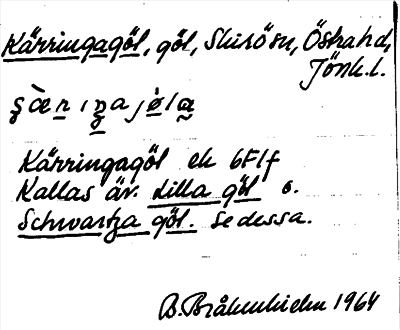 Kärringagöl, göl, Skirösn, Östrahd,
Jönk.l.
Kärringagöl ek 6F1f
Kallas äv. Lilla göl o.
Schwartza göl. Se dessa.
B. Bråkenhielm 1964